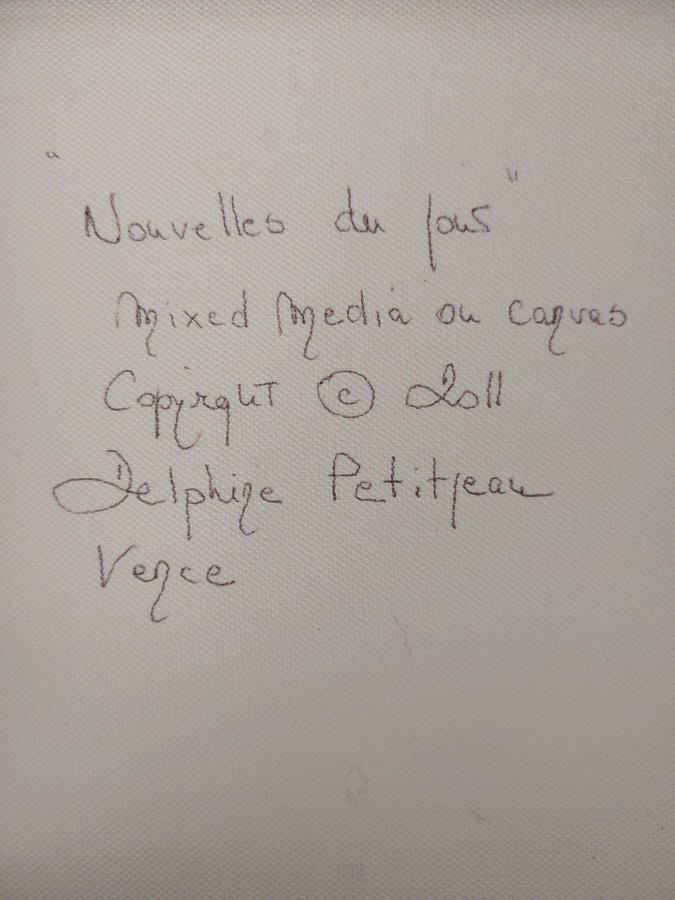 "Nouvelles du jour"
Mixed Media on canvas
Copyright © 2011
Delphine Petitjean
Vence